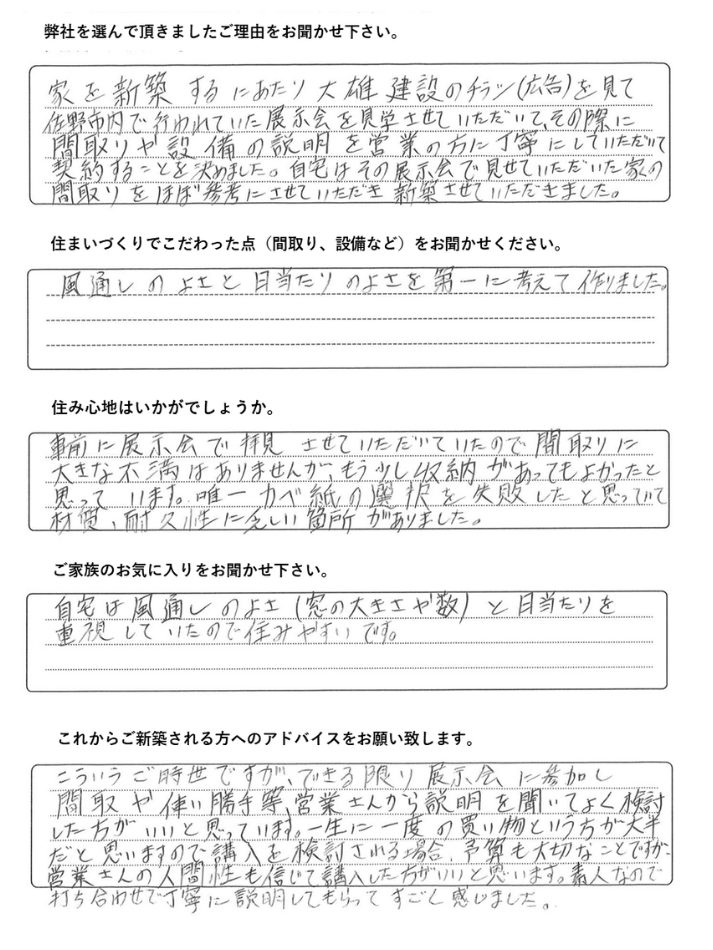 弊社を選んで頂きましたご理由をお聞かせ下さい。
家を新築するにあたり大雄建設のチラシ(広告)を見て
佐野市内で行われていた展示会を見学させていただいて、その際に
間取りや設備の説明を営業の方に丁寧にしていただいて
契約することを決めました。自宅はその展示会で見せていただいた家の
間取りをほぼ参考にさせていただき新築させていただきました。
住まいづくりでこだわった点（間取り、設備など）をお聞かせください。
風通しのよさと日当たりのよさを第一に考えて作りました。
住み心地はいかがでしょうか。
事前に展示会で拝見させていただいていたので間取りに
大きな不満はありませんが、もう少し収納があってもよかったと
思っています。唯一カベ紙の選択を失敗したと思っていて
材質、耐久性に乏しい箇所がありました。
ご家族のお気に入りをお聞かせ下さい。
自宅は風通しのよさ(窓の大きさや数)と日当たりを
重視していたので住みやすいです。
これからご新築される方へのアドバイスをお願い致します。
こういうご時世ですが、できる限り展示会に参加し
間取や使い勝手等、営業さんから説明を聞いてよく検討
した方がいいと思っています。一生に一度の買い物という方が大半
だと思いますので、講入を検討される場合、予算も大切なことですが、
営業さんの人間性も信じて講入した方がいいと思います。素人なので
打ち合わせで丁寧に説明してもらってすごく感じました。